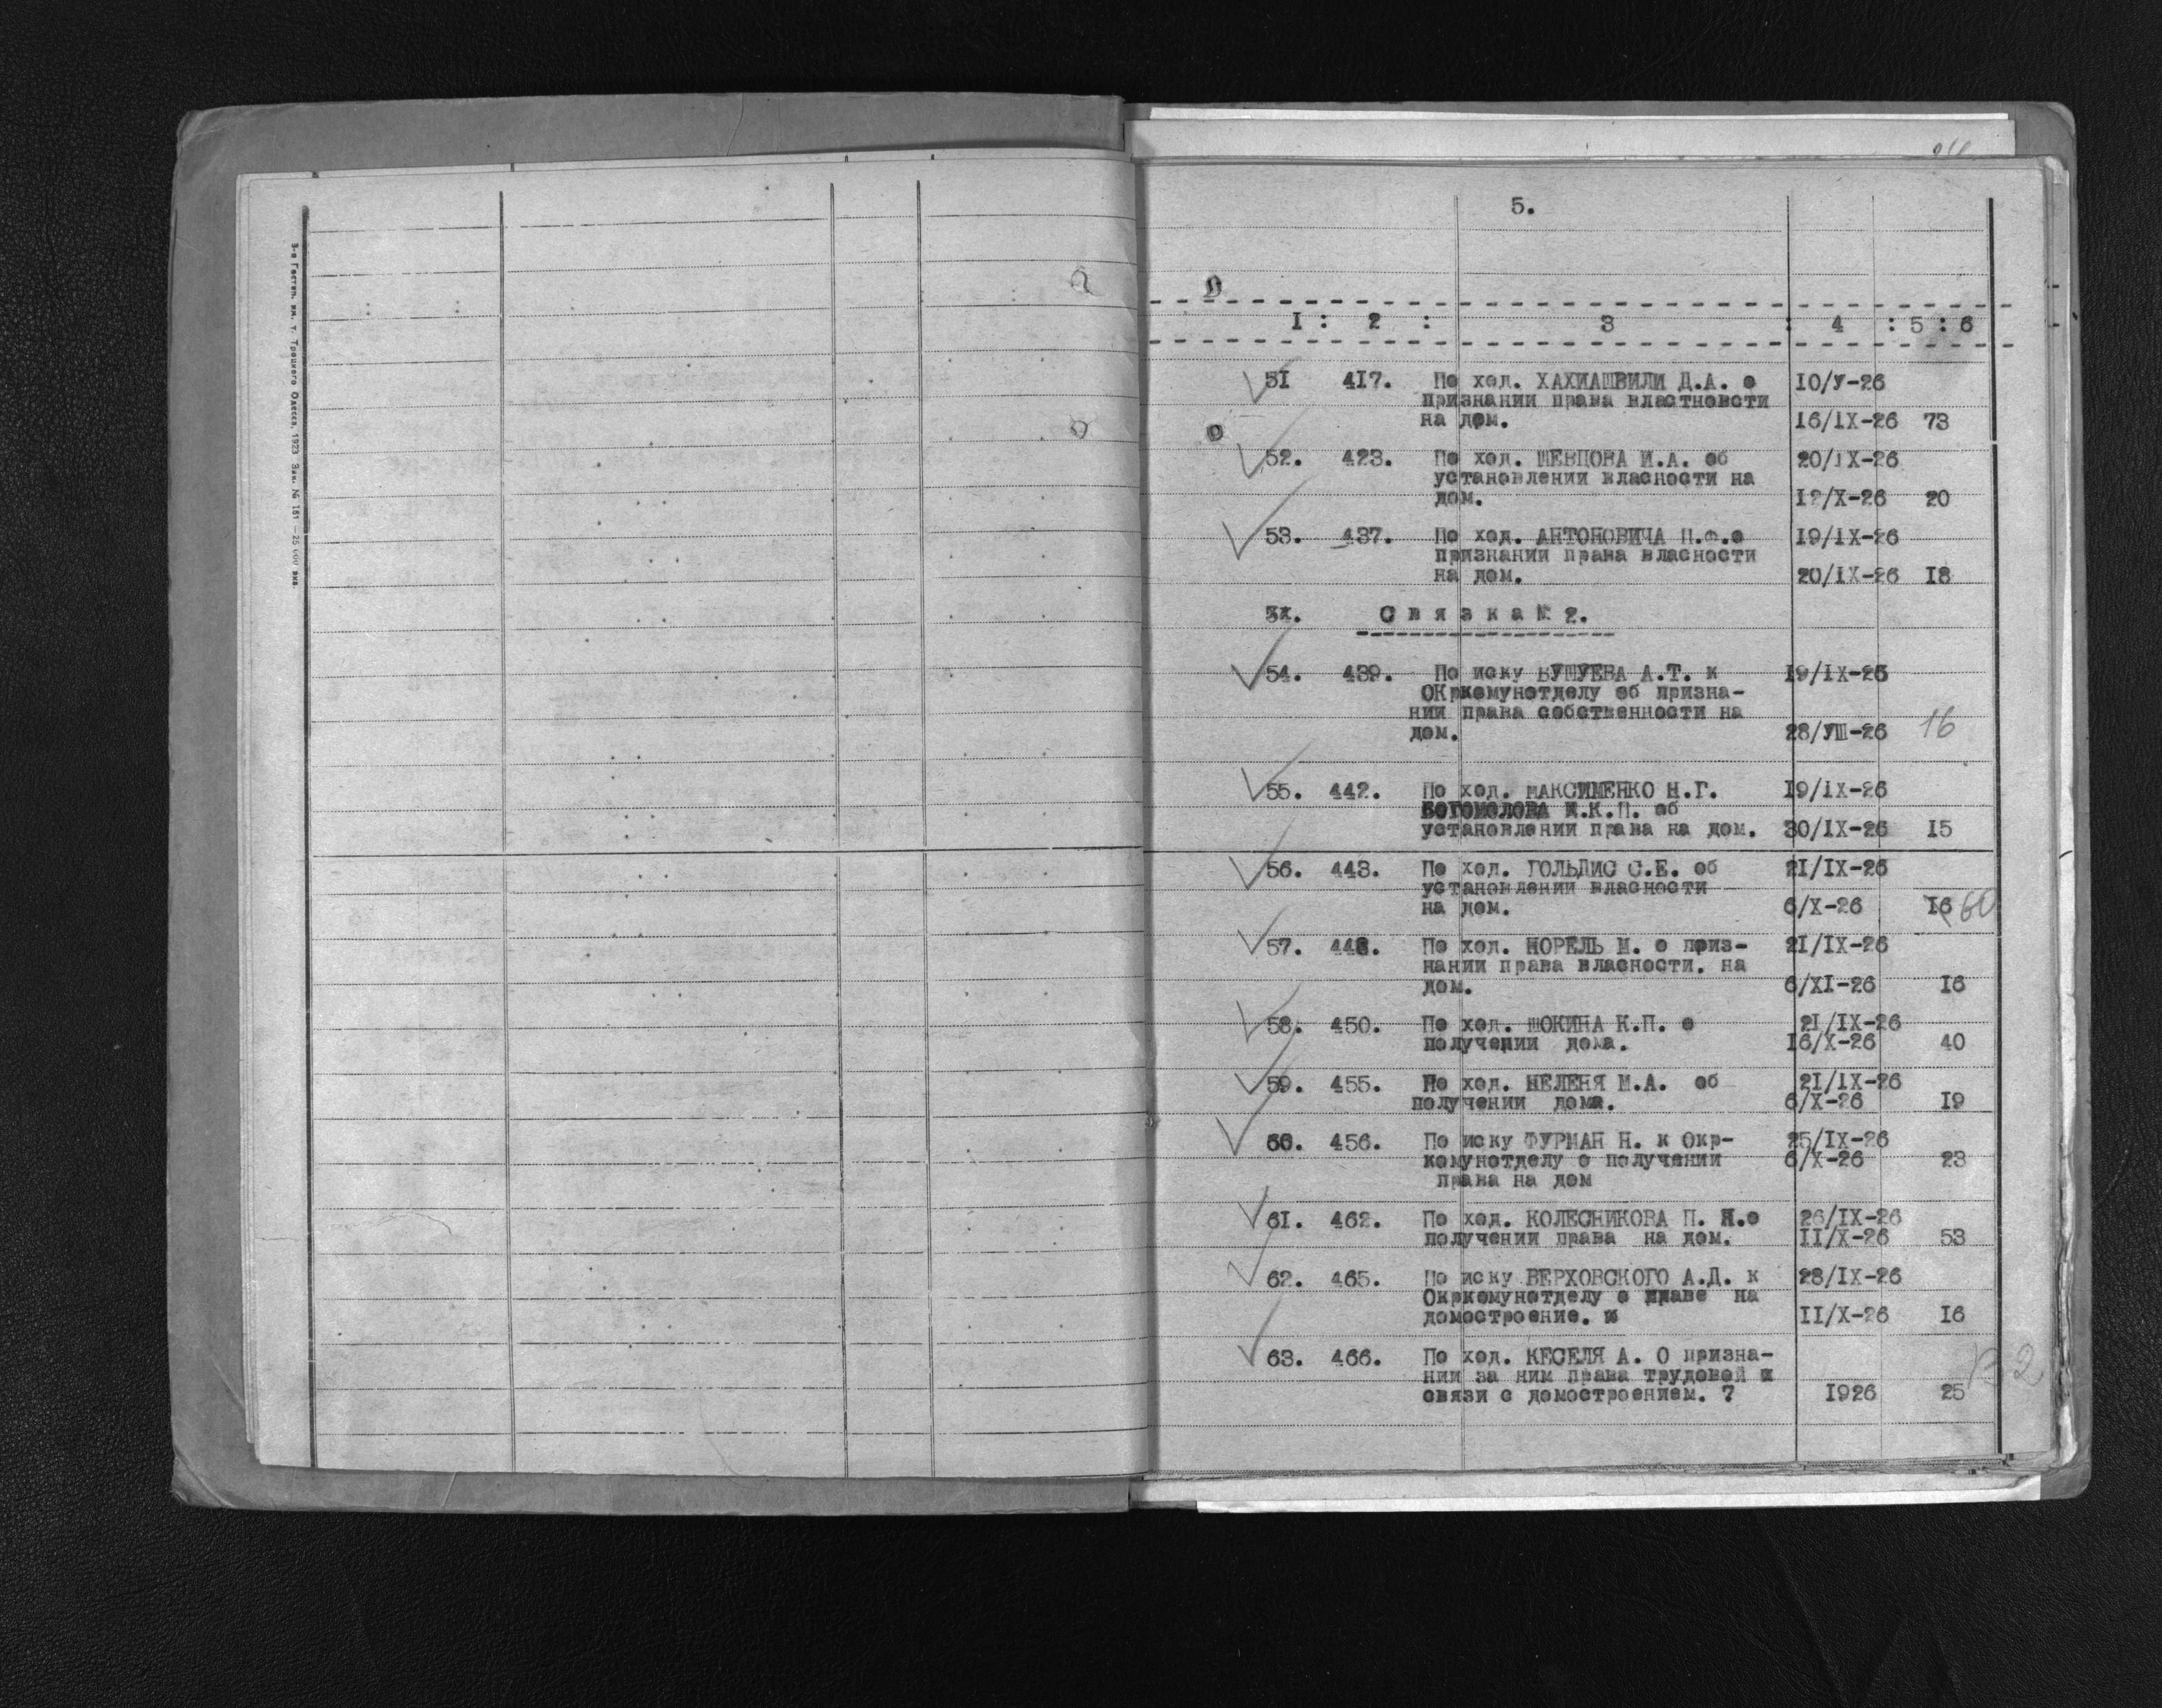 3-я Гостип. им. т. Троцкого Одесса, 1923 Зак. № 161 — 25 000 экз.
5.
I : 2 : 3 : 4 : 5 : 6
51 417. По ход. ХАХИАШВИЛИ Д.А. о 10/У-26
признании права властновсти
на дом. 16/IX-26 73
52. 423. По ход. ШЕВЦОВА И.А. об 20/IX-26
установлении власности на
дом. 12/X-26 20
53. 437. По ход. АНТОНОВИЧА Н.Ф.о 19/IX-26
признании права власности
на дом. 20/IX-26 18
С в я з к а № 2.
54. 439. По иску БУШУЕВА А.Т. к 19/IX-26
ОКркомунотделу об призна-
нии права собственности на
дом. 28/УШ-26 16
55. 442. По ход. МАКСИМЕНКО Н.Г. 19/IX-26
БОГОМОЛОВА И.К.П. об
установлении права на дом. 30/IX-26 15
56. 443. По ход. ГОЛЬДИС С.Е. об 21/IX-26
установлении власности
на дом. 6/X-26 16 60
57. 448. По ход. НОРЕЛЬ М. о приз- 21/IX-26
нании права власности. на
дом. 6/XI-26 16
58. 450. По ход. ШОКИНА К.П. о 21/IX-26
получении дома. 16/X-26 40
59. 455. По ход. НЕЛЕНЯ М.А. об 21/IX-26
получении дома. 6/X-26 19
60. 456. По иску ФУРМАН Н. к Окр- 25/IX-26
комунотделу о получении 6/X-26 23
права на дом
61. 462. По ход. КОЛЕСНИКОВА П. И.о 26/IX-26
получении права на дом. II/X-26 53
62. 465. По иску ВЕРХОВСКОГО А.Д. к 28/IX-26
Окркомунотделу о праве на
домостроение. II/X-26 16
63. 466. По ход. КЕСЕЛЯ А. О призна-
нии за ним права трудовой
связи с домостроением. 7 1926 25